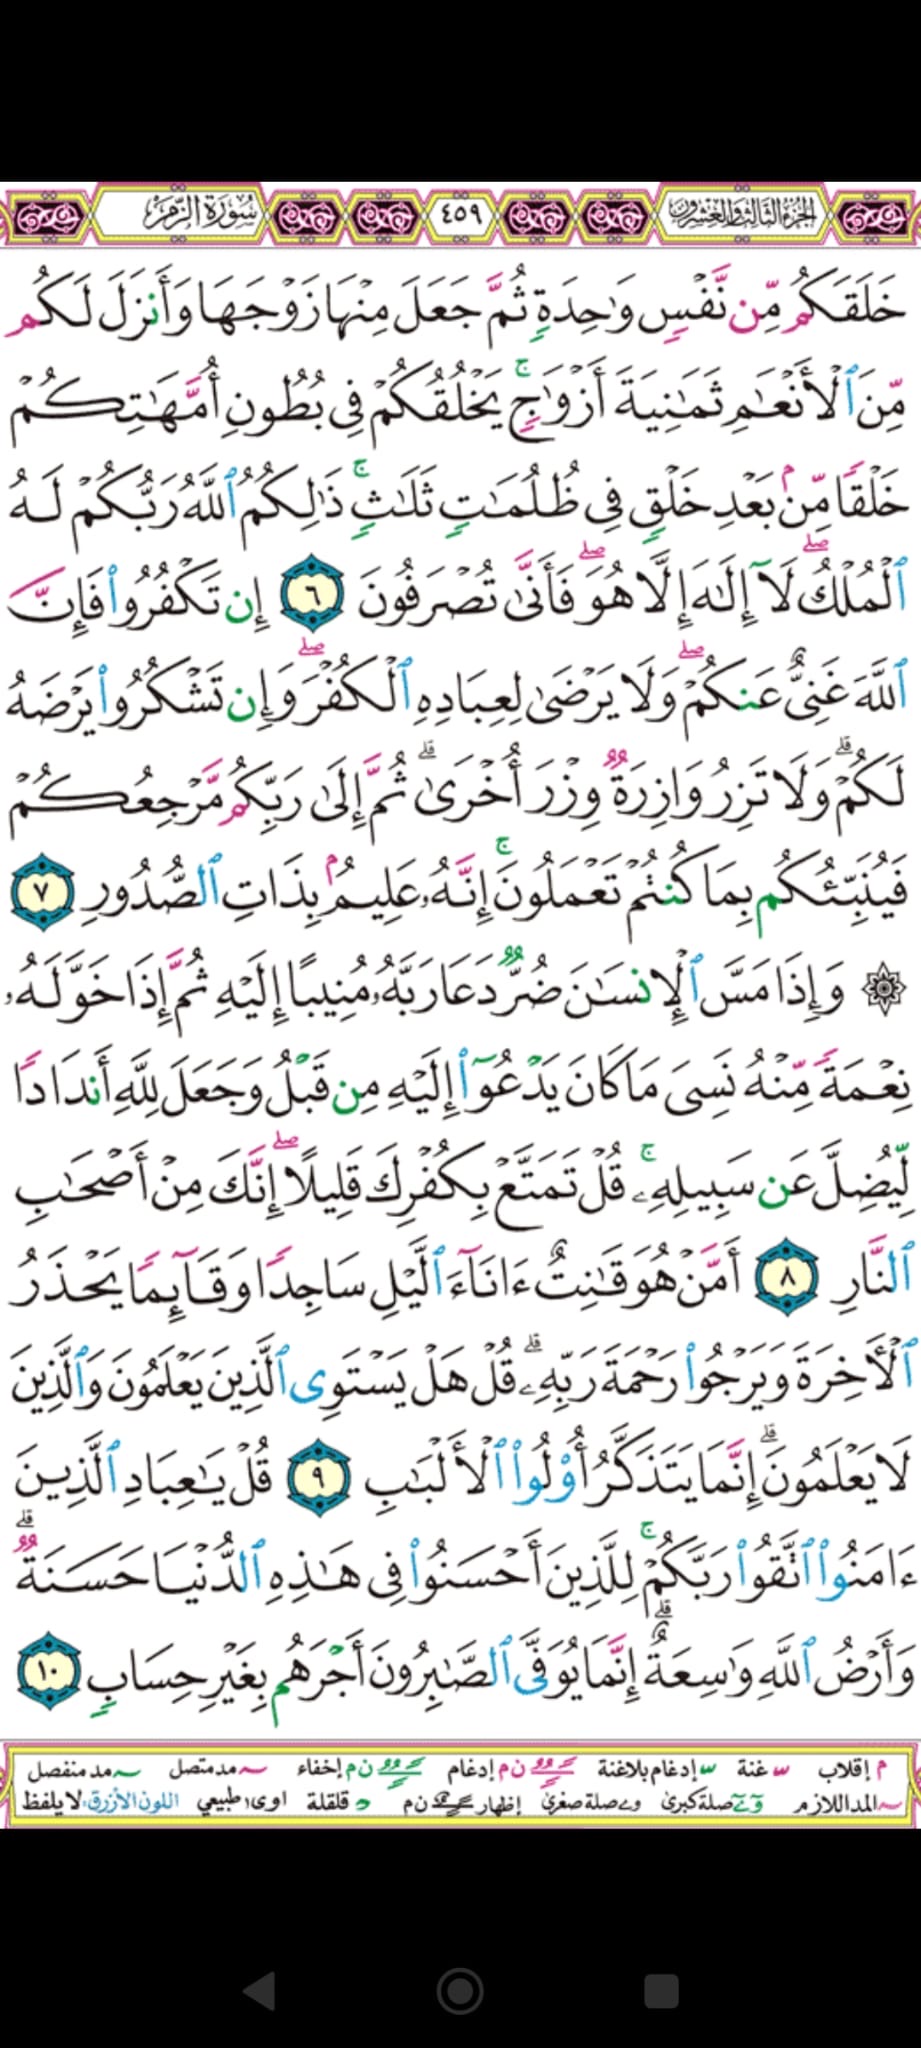 الجزء الثالث والعشرون ٤٥٩ سورة الزمر
خَلَقَكُم مِّن نَّفْسٍ وَٰحِدَةٍ ثُمَّ جَعَلَ مِنْهَا زَوْجَهَا وَأَنزَلَ لَكُم
مِّنَ ٱلْأَنْعَٰمِ ثَمَٰنِيَةَ أَزْوَٰجٍ ۚ يَخْلُقُكُمْ فِى بُطُونِ أُمَّهَٰتِكُمْ
خَلْقًا مِّنۢ بَعْدِ خَلْقٍ فِى ظُلُمَٰتٍ ثَلَٰثٍ ۚ ذَٰلِكُمُ ٱللَّهُ رَبُّكُمْ لَهُ
ٱلْمُلْكُ ۖ لَآ إِلَٰهَ إِلَّا هُوَ ۖ فَأَنَّىٰ تُصْرَفُونَ ٦ إِن تَكْفُرُوا۟ فَإِنَّ
ٱللَّهَ غَنِىٌّ عَنكُمْ ۖ وَلَا يَرْضَىٰ لِعِبَادِهِ ٱلْكُفْرَ ۖ وَإِن تَشْكُرُوا۟ يَرْضَهُ
لَكُمْ ۗ وَلَا تَزِرُ وَازِرَةٌ وِزْرَ أُخْرَىٰ ۗ ثُمَّ إِلَىٰ رَبِّكُم مَّرْجِعُكُمْ
فَيُنَبِّئُكُم بِمَا كُنتُمْ تَعْمَلُونَ ۚ إِنَّهُۥ عَلِيمٌۢ بِذَاتِ ٱلصُّدُورِ ٧
۞ وَإِذَا مَسَّ ٱلْإِنسَٰنَ ضُرٌّ دَعَا رَبَّهُۥ مُنِيبًا إِلَيْهِ ثُمَّ إِذَا خَوَّلَهُۥ
نِعْمَةً مِّنْهُ نَسِىَ مَا كَانَ يَدْعُوٓا۟ إِلَيْهِ مِن قَبْلُ وَجَعَلَ لِلَّهِ أَندَادًا
لِّيُضِلَّ عَن سَبِيلِهِۦ ۚ قُلْ تَمَتَّعْ بِكُفْرِكَ قَلِيلًا ۖ إِنَّكَ مِنْ أَصْحَٰبِ
ٱلنَّارِ ٨ أَمَّنْ هُوَ قَٰنِتٌ ءَانَآءَ ٱلَّيْلِ سَاجِدًا وَقَآئِمًا يَحْذَرُ
ٱلْءَاخِرَةَ وَيَرْجُوا۟ رَحْمَةَ رَبِّهِۦ ۗ قُلْ هَلْ يَسْتَوِى ٱلَّذِينَ يَعْلَمُونَ وَٱلَّذِينَ
لَا يَعْلَمُونَ ۗ إِنَّمَا يَتَذَكَّرُ أُو۟لُوا۟ ٱلْأَلْبَٰبِ ٩ قُلْ يَٰعِبَادِ ٱلَّذِينَ
ءَامَنُوا۟ ٱتَّقُوا۟ رَبَّكُمْ ۚ لِلَّذِينَ أَحْسَنُوا۟ فِى هَٰذِهِ ٱلدُّنْيَا حَسَنَةٌ ۗ
وَأَرْضُ ٱللَّهِ وَٰسِعَةٌ ۗ إِنَّمَا يُوَفَّى ٱلصَّٰبِرُونَ أَجْرَهُم بِغَيْرِ حِسَابٍ ١٠
م إقلاب غنة إدغام بلاغنة ن م إدغام ن م إخفاء مد متصل مد منفصل
المد اللازم صلة كبرى صلة صغرى إظهار ن م قلقلة اوى طبيعي اللون الأزرق لا يلفظ